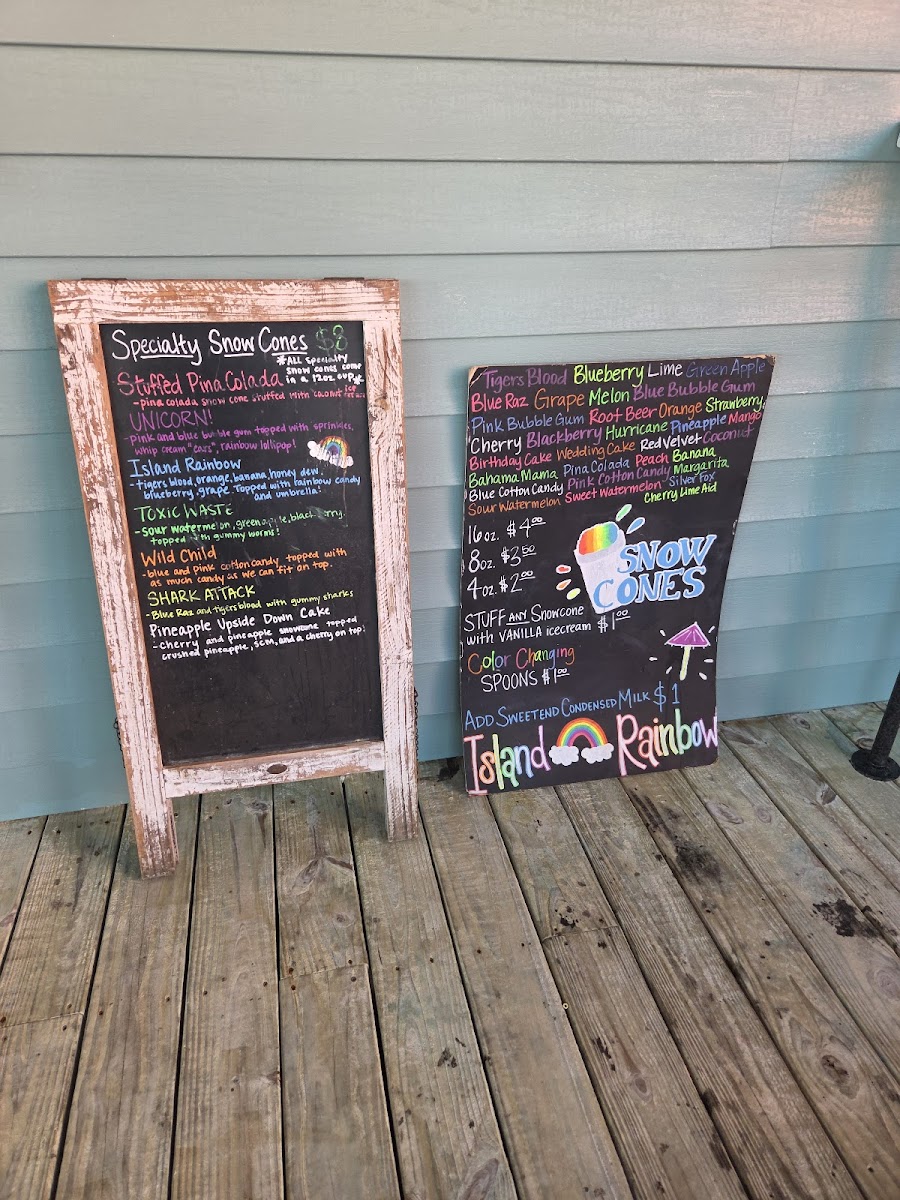 Specialty Snow Cones $8
*ALL Specialty
Snow cones come
in a 12oz cup*
Stuffed Pina Colada
-pina colada snow cone stuffed with coconut ice cream
UNICORN!
-pink and blue bubble gum topped with sprinkles,
whip cream "ears", rainbow lollipop!
Island Rainbow
-tigers blood, orange, banana, honey dew,
blueberry, grape. Topped with rainbow candy
and umbrella!
TOXIC WASTE
-sour watermelon, green apple, blackberry,
topped with gummy worms!
Wild Child
-blue and pink cotton candy topped with
as much candy as we can fit on top.
SHARK ATTACK
-Blue Raz and tigers blood with gummy sharks
Pineapple Upside Down Cake
-cherry and pineapple snowcone topped
crushed pineapple, SCM, and a cherry on top!
Tigers Blood Blueberry Lime Green Apple
Blue Raz Grape Melon Blue Bubble Gum
Pink Bubble Gum Root Beer Orange Strawberry
Cherry Blackberry Hurricane Pineapple Mango
Birthday Cake Wedding Cake Red Velvet Coconut
Bahama Mama Pina Colada Peach Banana
Blue Cotton Candy Pink Cotton Candy Margarita
Sour Watermelon Sweet Watermelon Silver Fox
Cherry Lime Aid
16 oz. $4.00
8 oz. $3.50
4 oz. $2.00
SNOW
CONES
STUFF ANY Snowcone
with VANILLA icecream $1.00
Color Changing
SPOONS $1.00
ADD SWEETEND CONDENSED MILK $1
Island Rainbow